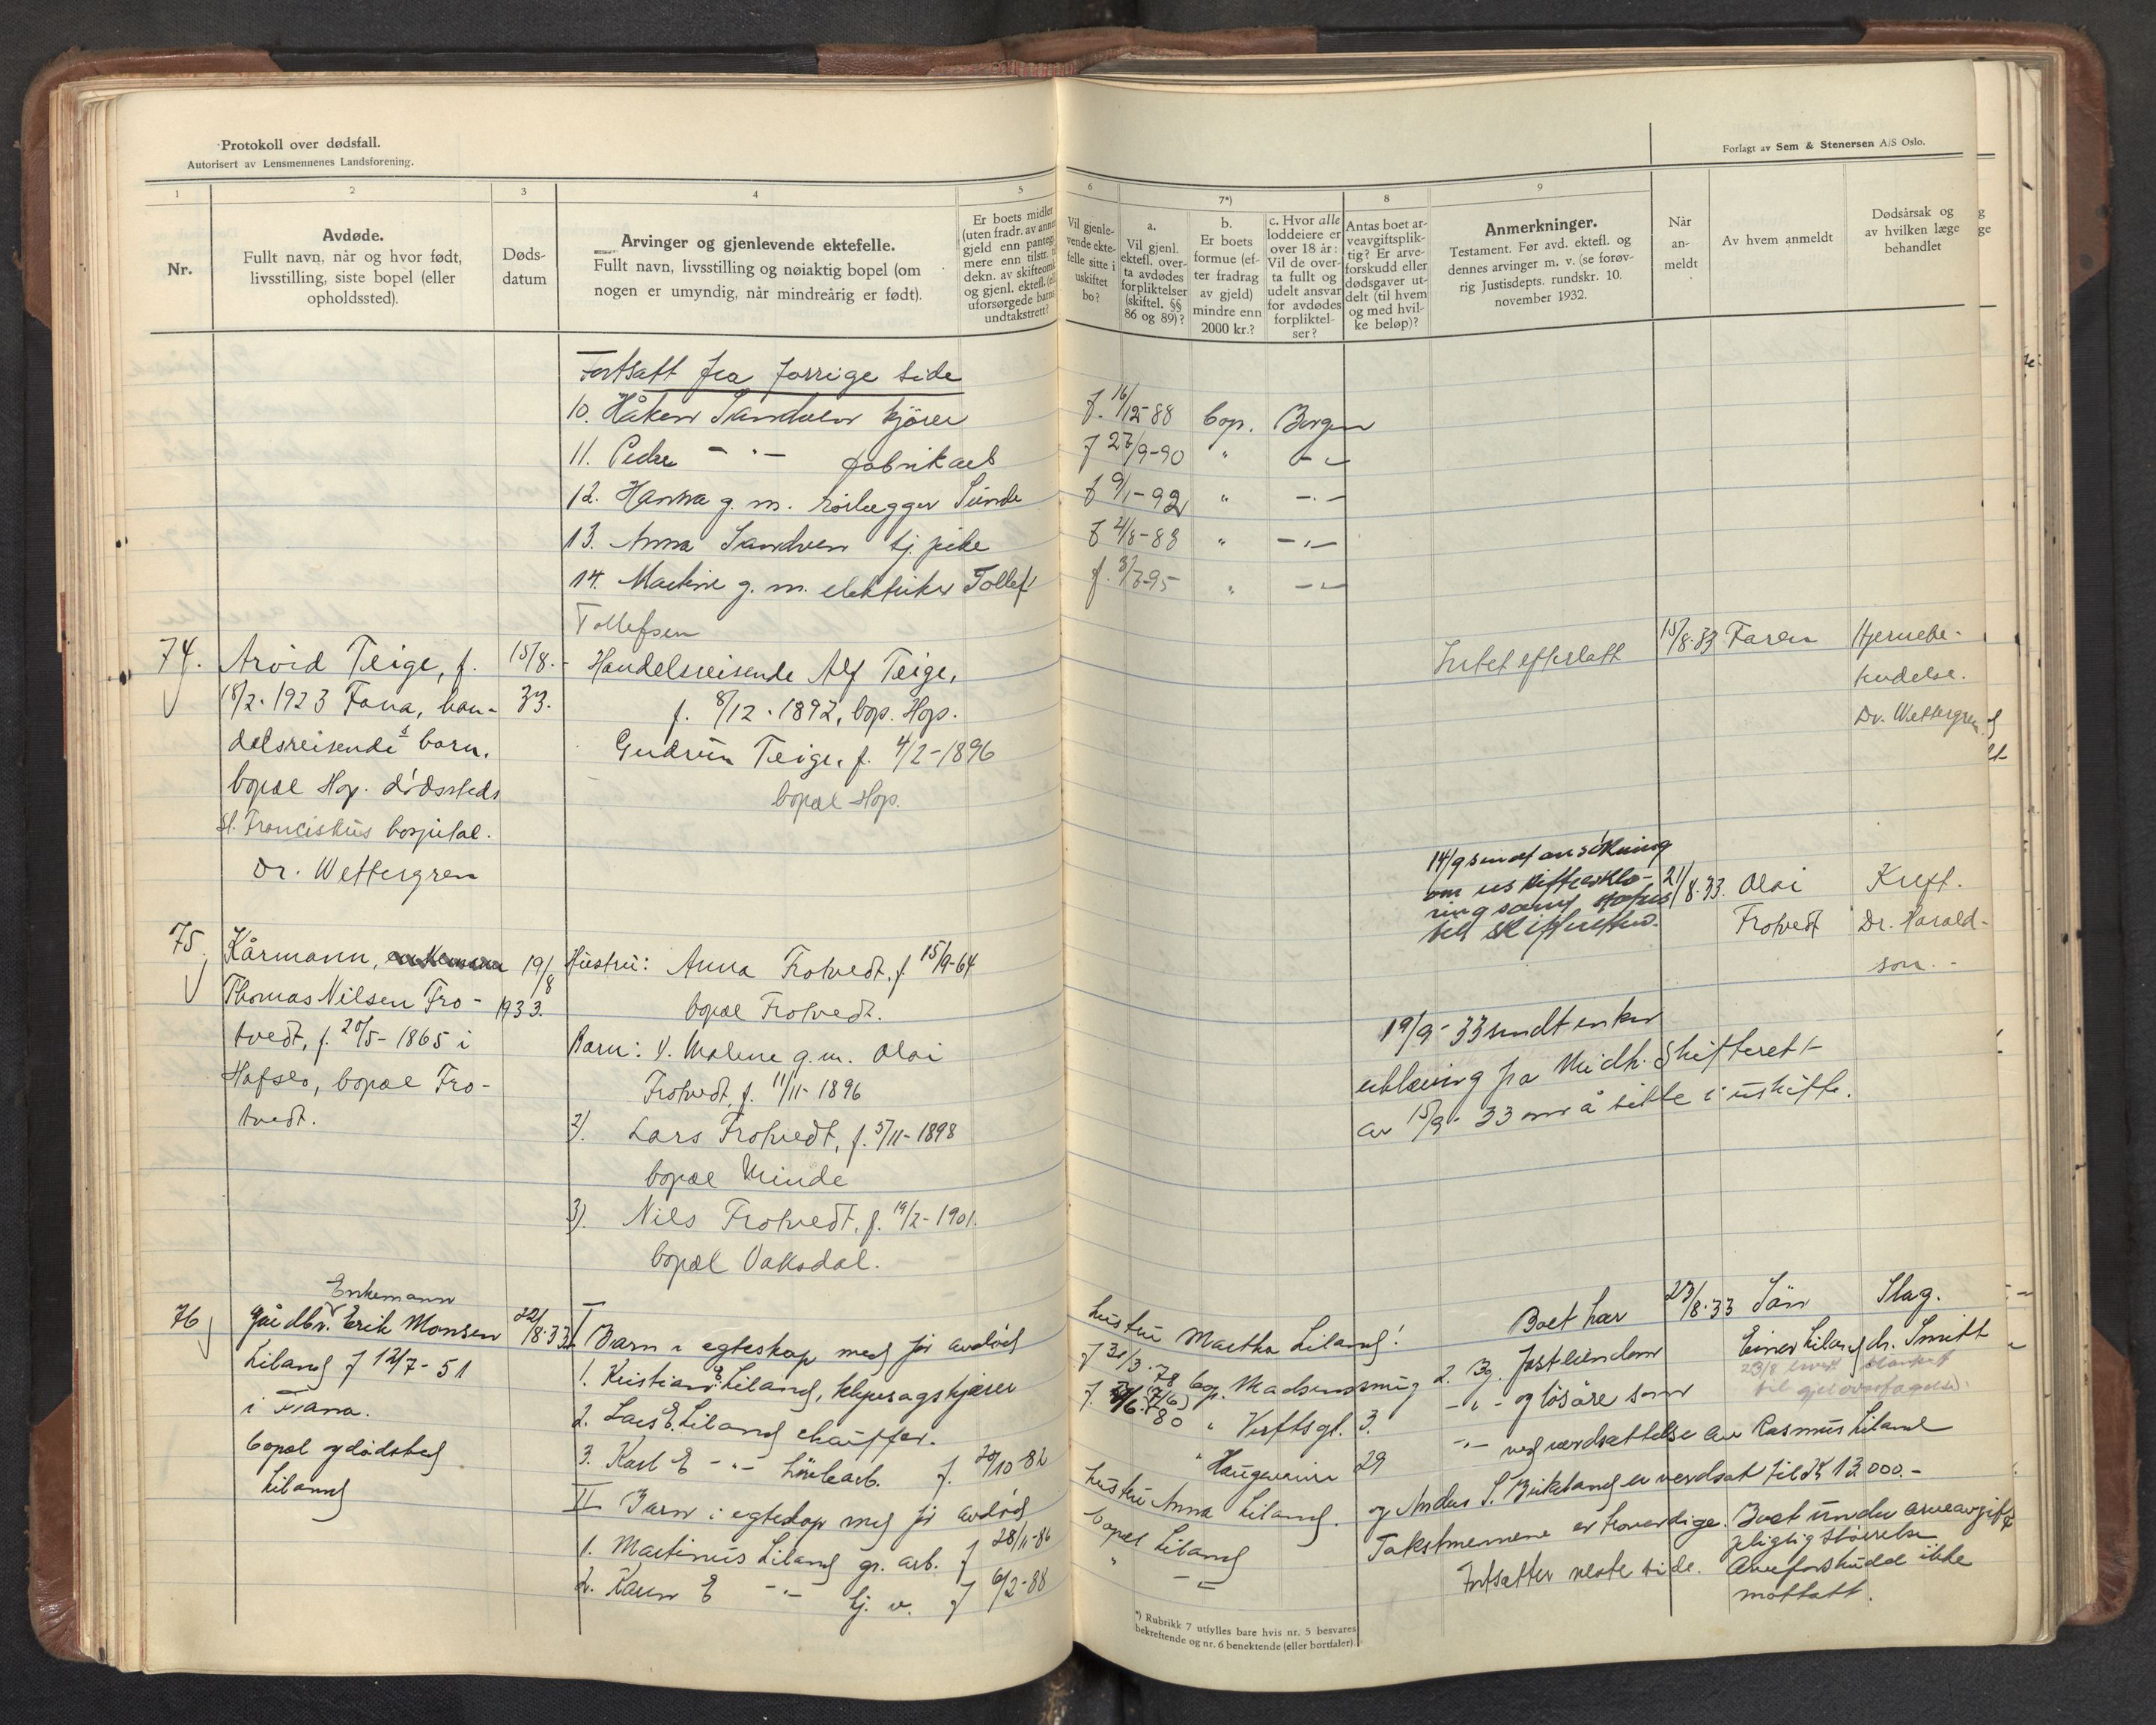 Protokoll over dødsfall.
Autorisert av Lensmennenes Landsforening.
Forlagt av Sem & Stenersen A/S Oslo.
1
2
3
4
5
6
7*)
8
9
Nr.
Avdøde.
Fullt navn, når og hvor født,
livsstilling, siste bopel (eller
opholdssted).
Døds-
datum
Arvinger og gjenlevende ektefelle.
Fullt navn, livsstilling og nøiaktig bopel (om
nogen er umyndig, når mindreårig er født).
Er boets midler
(uten fradr. av annen
gjeld enn pantegj.
mere enn tilstr. t
dekn. av skifteomk.
og gjenl. ektefl. (el.
uforsørgede barns
undtaksrett?
Vil gjenle-
vende ekte-
felle sitte i
uskiftet
bo?
a.
Vil gjenl.
ektefl. over-
ta avdødes
forpliktelser
(skiftel. §§
86 og 89)?
b.
Er boets
formue (ef-
ter fradrag
av gjeld)
mindre enn
2000 kr.?
c. Hvor alle
loddeiere er
over 18 år:
Vil de over-
ta fullt og
udelt ansvar
for avdødes
forpliktel-
ser?
Antas boet ar-
veavgiftsplik-
tig? Er arve-
forskudd eller
dødsgaver ut-
delt (til hvem
og med hvil-
ke beløp)?
Anmerkninger.
Testament. Før avd. ektefl. og
dennes arvinger m. v. (se forøv-
rig Justisdepts. rundskr. 10.
november 1932.
Når
an-
meldt
Av hvem anmeldt
Dødsårsak og
av hvilken læge
behandlet
Fortsatt fra forrige side
10. Håken Sandven kjører f. 16/12-88 bop. Bergen
11. Peder - " - fabrikarb f 27/9-90 " - " -
12. Hanna g. m. rørlegger Sunde f 9/1-92 " - " -
13. Anna Sandven tj. pike f 2/8-88 " - " -
14. Martine g. m. elektriker Tollef f. 3/7-95 " - " -
Tollefsen
74. Arvid Teige, f.
18/2-1923 Fana, han-
delsreisendes barn.
bopæl Hop. dødssteds
St. Franciskus hospital.
Dr. Wettergren
15/8.-
33.
Handelsreisende Alf Teige,
f. 8/12-1892, bop. Hop.
Gudrun Teige, f. 4/2-1896
bopæl Hop.
Intet efterlatt
15/8.33. Faren
Hjernebe-
tendelse.
Dr. Wettergren
75. Kårmann, enkemann
Thomas Nilsen Fro-
tvedt, f. 20/5-1865 i
Hafslo, bopæl Fro-
tvedt.
19/8
1933.
Hustru: Anna Frotvedt. f 15/9-64
bopæl Frotvedt.
Barn: 1. Malene g. m. Olai
Frotvedt, f. 11/11-1896
2). Lars Frotvedt, f. 5/11-1898
bopæl Minde
3). Nils Frotvedt, f. 19/2-1901.
bopæl Vaksdal.
14/9 sendt ansökning
om uskifteerklæ-
ring samt
til skifteretten.
19/9-33 sendt enken
erklæring fra Midh. Skifterett
av 15/9-33 om å sitte i uskifte.
21/8.33. Olai
Frotvedt
Kreft.
Dr. Harald-
son.-
76 Enkemann
Gårdbr. Erik Monsen
Liland f 12/7-51
i Fana.
bopæl og dødssted
Liland
22/8.33
I Barn i egteskap med før avdød
hustru Martha Liland!
1. Kristian E Liland, f 31/3-78 bop. Madsensmug 2.
2. Lars E. Liland chauffør. f. 80 " Verftsgt. 3.
3. Karl E - " - f. 20/10-82 " 29
II Barn i egteskap med før avdød
hustru Anna Liland.
1. Martinus Liland gr. arb. f 28/11-86 bopæl Liland
2. Karen E - " - tj. v. f 6/2-88 " - " -
Boet har
Bg. fast eiendom
- " - og løsøre som
- " - ved verdsættelse av Rasmus Liland
og Anders S. Birkeland er verdsat til kr 12000.-
Takstmennene er troverdige. Boet under arveavgift
pligtig størrelse
Fortsetter neste side. Arveforskudd ikke
mottatt.
23/8.33 Sön
Einar Liland
Slag.
dr. Smitt
*) Rubrikk 7 utfylles bare hvis nr. 5 besvares
bekreftende og nr. 6 benektende (eller bortfaler)